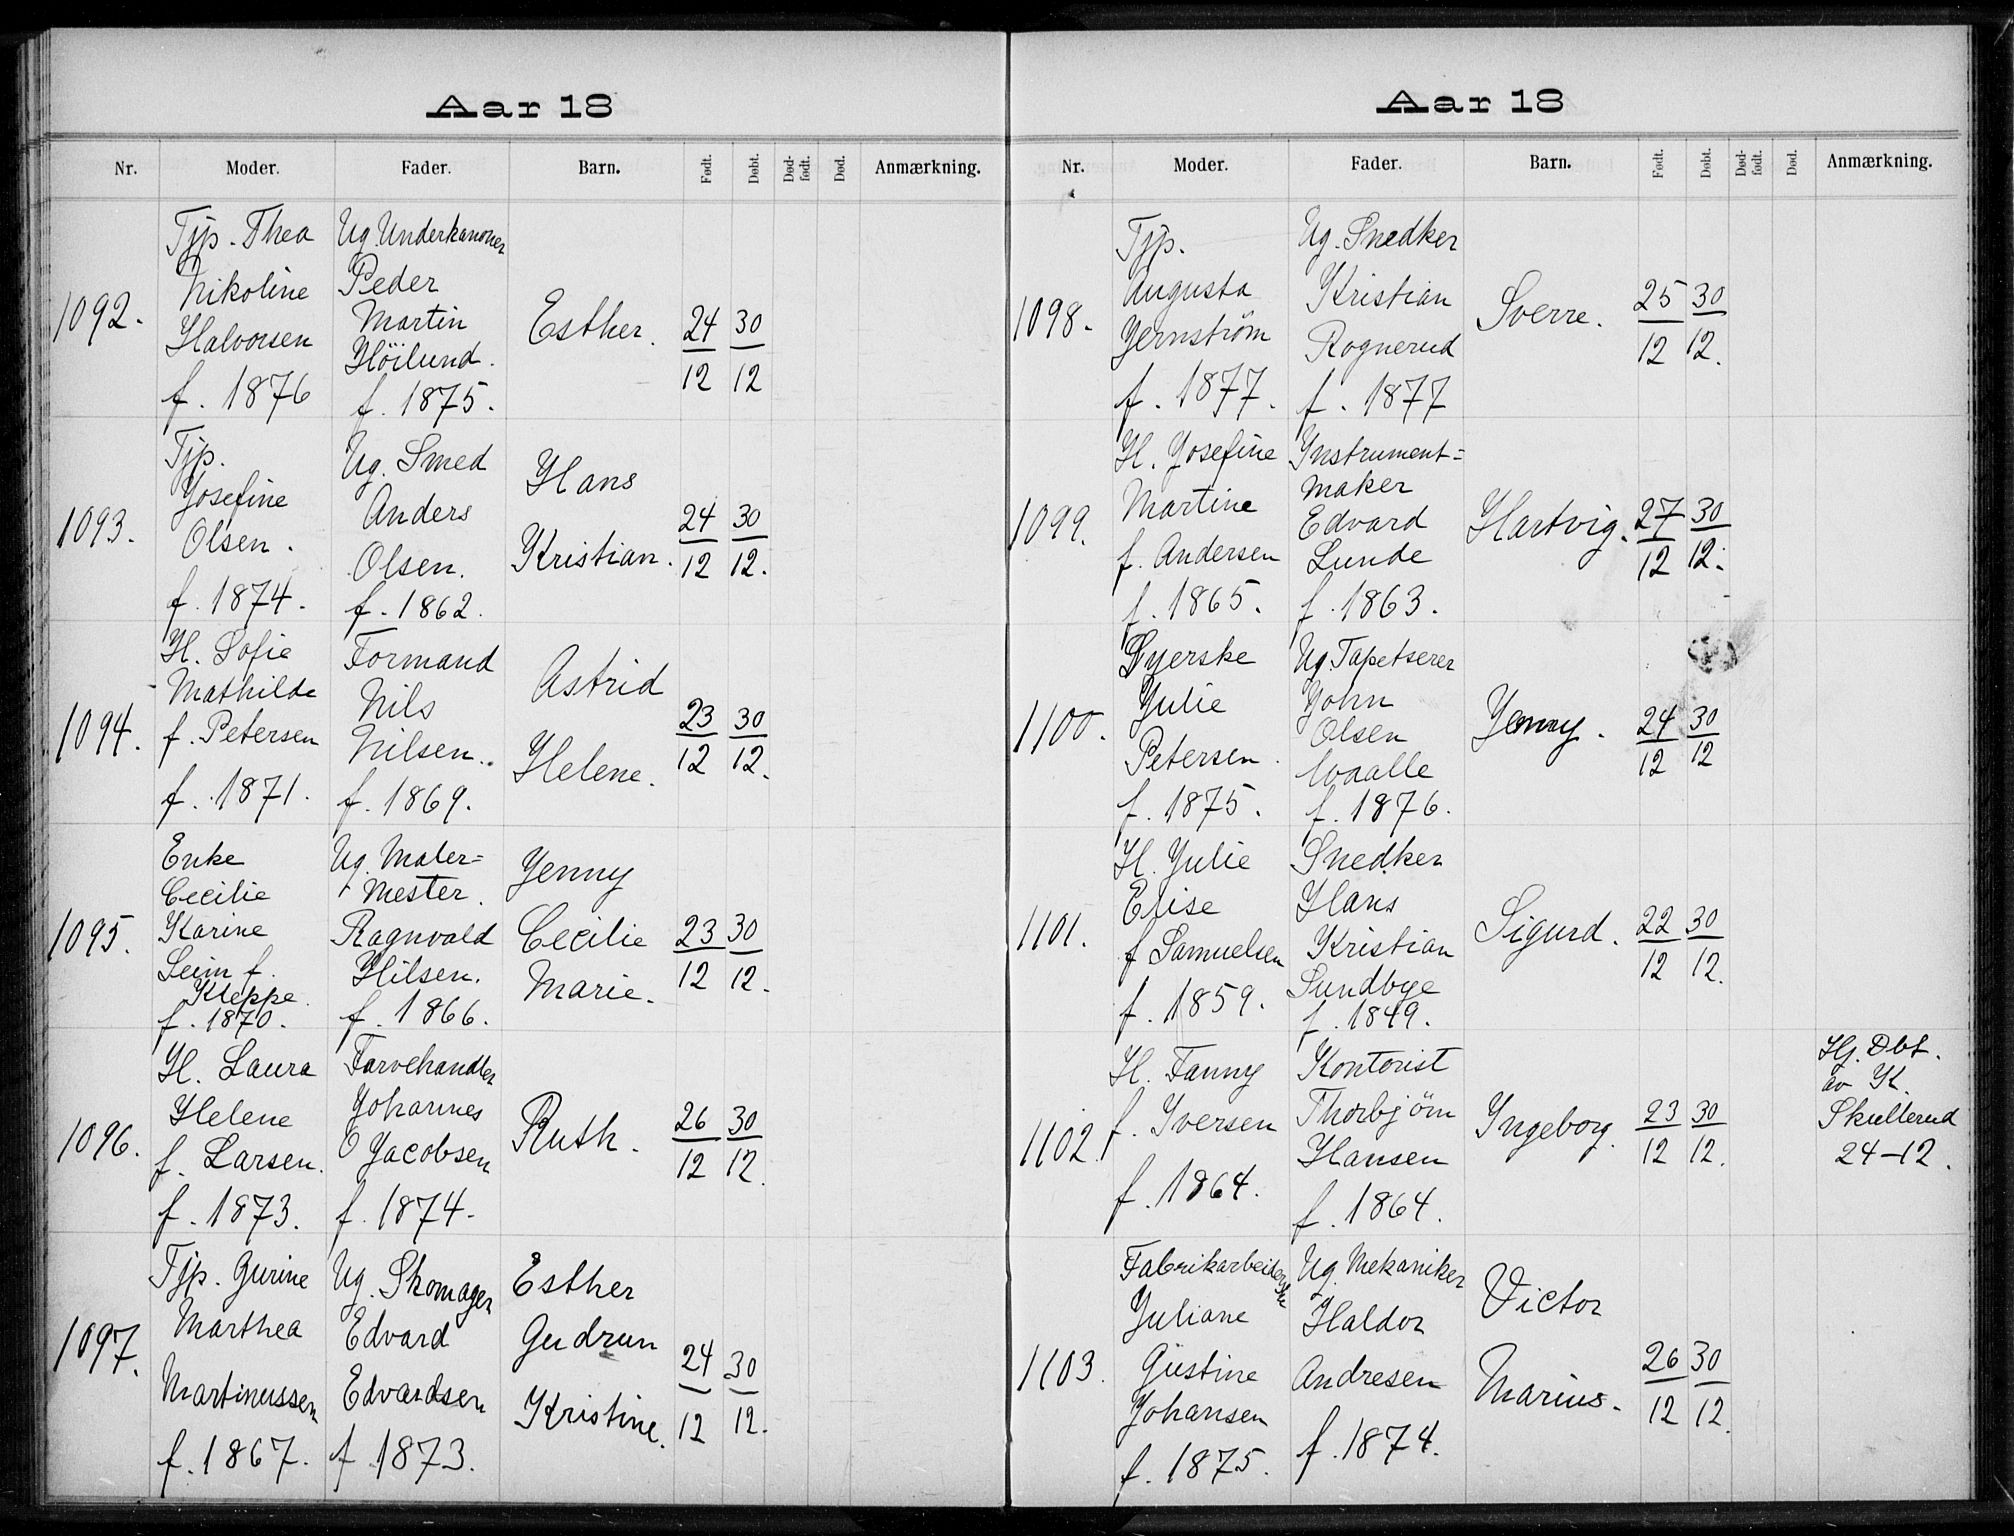 Aar 18
Nr. Moder. Fader. Barn. Født. Døbt. Død-født. Død. Anmærkning.
1092.
Tjp. Thea
Nikoline
Halvorsen
f. 1876
Ug. Underkanoner
Peder
Martin
Höilund.
f. 1875.
Esther.
24/12
30/12
1093.
Tjp.
Josefine
Olsen.
f. 1874.
Ug. Smed
Anders
Olsen.
f. 1862.
Hans
Kristian.
24/12
30/12.
1094.
H. Sofie
Mathilde
f. Petersen
f. 1871.
Formand
Nils
Nilsen.
f. 1869.
Astrid
Helene.
23/12
30/12.
1095.
Enke
Cecilie
Karine
Seim f.
Kleppe.
f. 1870.
Ug. Maler=
Mester.
Ragnvald
Hilsen.
f. 1866.
Jenny
Cecilie
Marie.
23/12
30/12.
1096.
H. Laura
Helene
f. Larsen.
f. 1873.
Farvehandler
Johannes
O Jacobsen
f. 1874.
Ruth.
26/12
30/12.
1097.
Tjp. Gurine
Marthea
Martinussen
f. 1867.
Ug. Skomager
Edvard
Edvardsen
f 1873.
Esther
Gudrun
Kristine.
24/12
30/12.
Aar 18
Nr. Moder. Fader. Barn. Født. Døbt. Død-født. Død. Anmærkning.
1098.
Tjp.
Augusta
Jernström
f. 1877.
Ug. Snedker
Kristian
Rognerud
f. 1877
Sverre.
25/12
30/12.
1099.
H. Josefine
Martine
f. Andersen
f. 1865.
Instrument=
maker
Edvard
Lunde
f. 1863.
Hartvig.
27/12
30/12.
1100.
Syerske
Julie
Petersen.
f. 1875.
Ug. Tapetserer
John
Olsen
Waalle
f. 1876.
Jenny.
24/12
30/12
1101.
H. Julie
Elise
f Samuelsen
f. 1859.
Snedker
Hans
Kristian
Sundbye
f. 1849.
Sigurd.
22/12
30/12.
1102.
H. Fanny
f. Iversen
f. 1864.
Kontorist
Thorbjörn
Hansen
f. 1864.
Ingeborg.
23/12
30/12.
Hj. Dbt.
av K.
Skullerud
24-12.
1103.
Fabrikarbeiderske
Juliane
Gustine
Johansen
f. 1875.
Ug. Mekaniker
Haldor
Andresen
f. 1874.
Victor
Marius.
26/12
30/12.